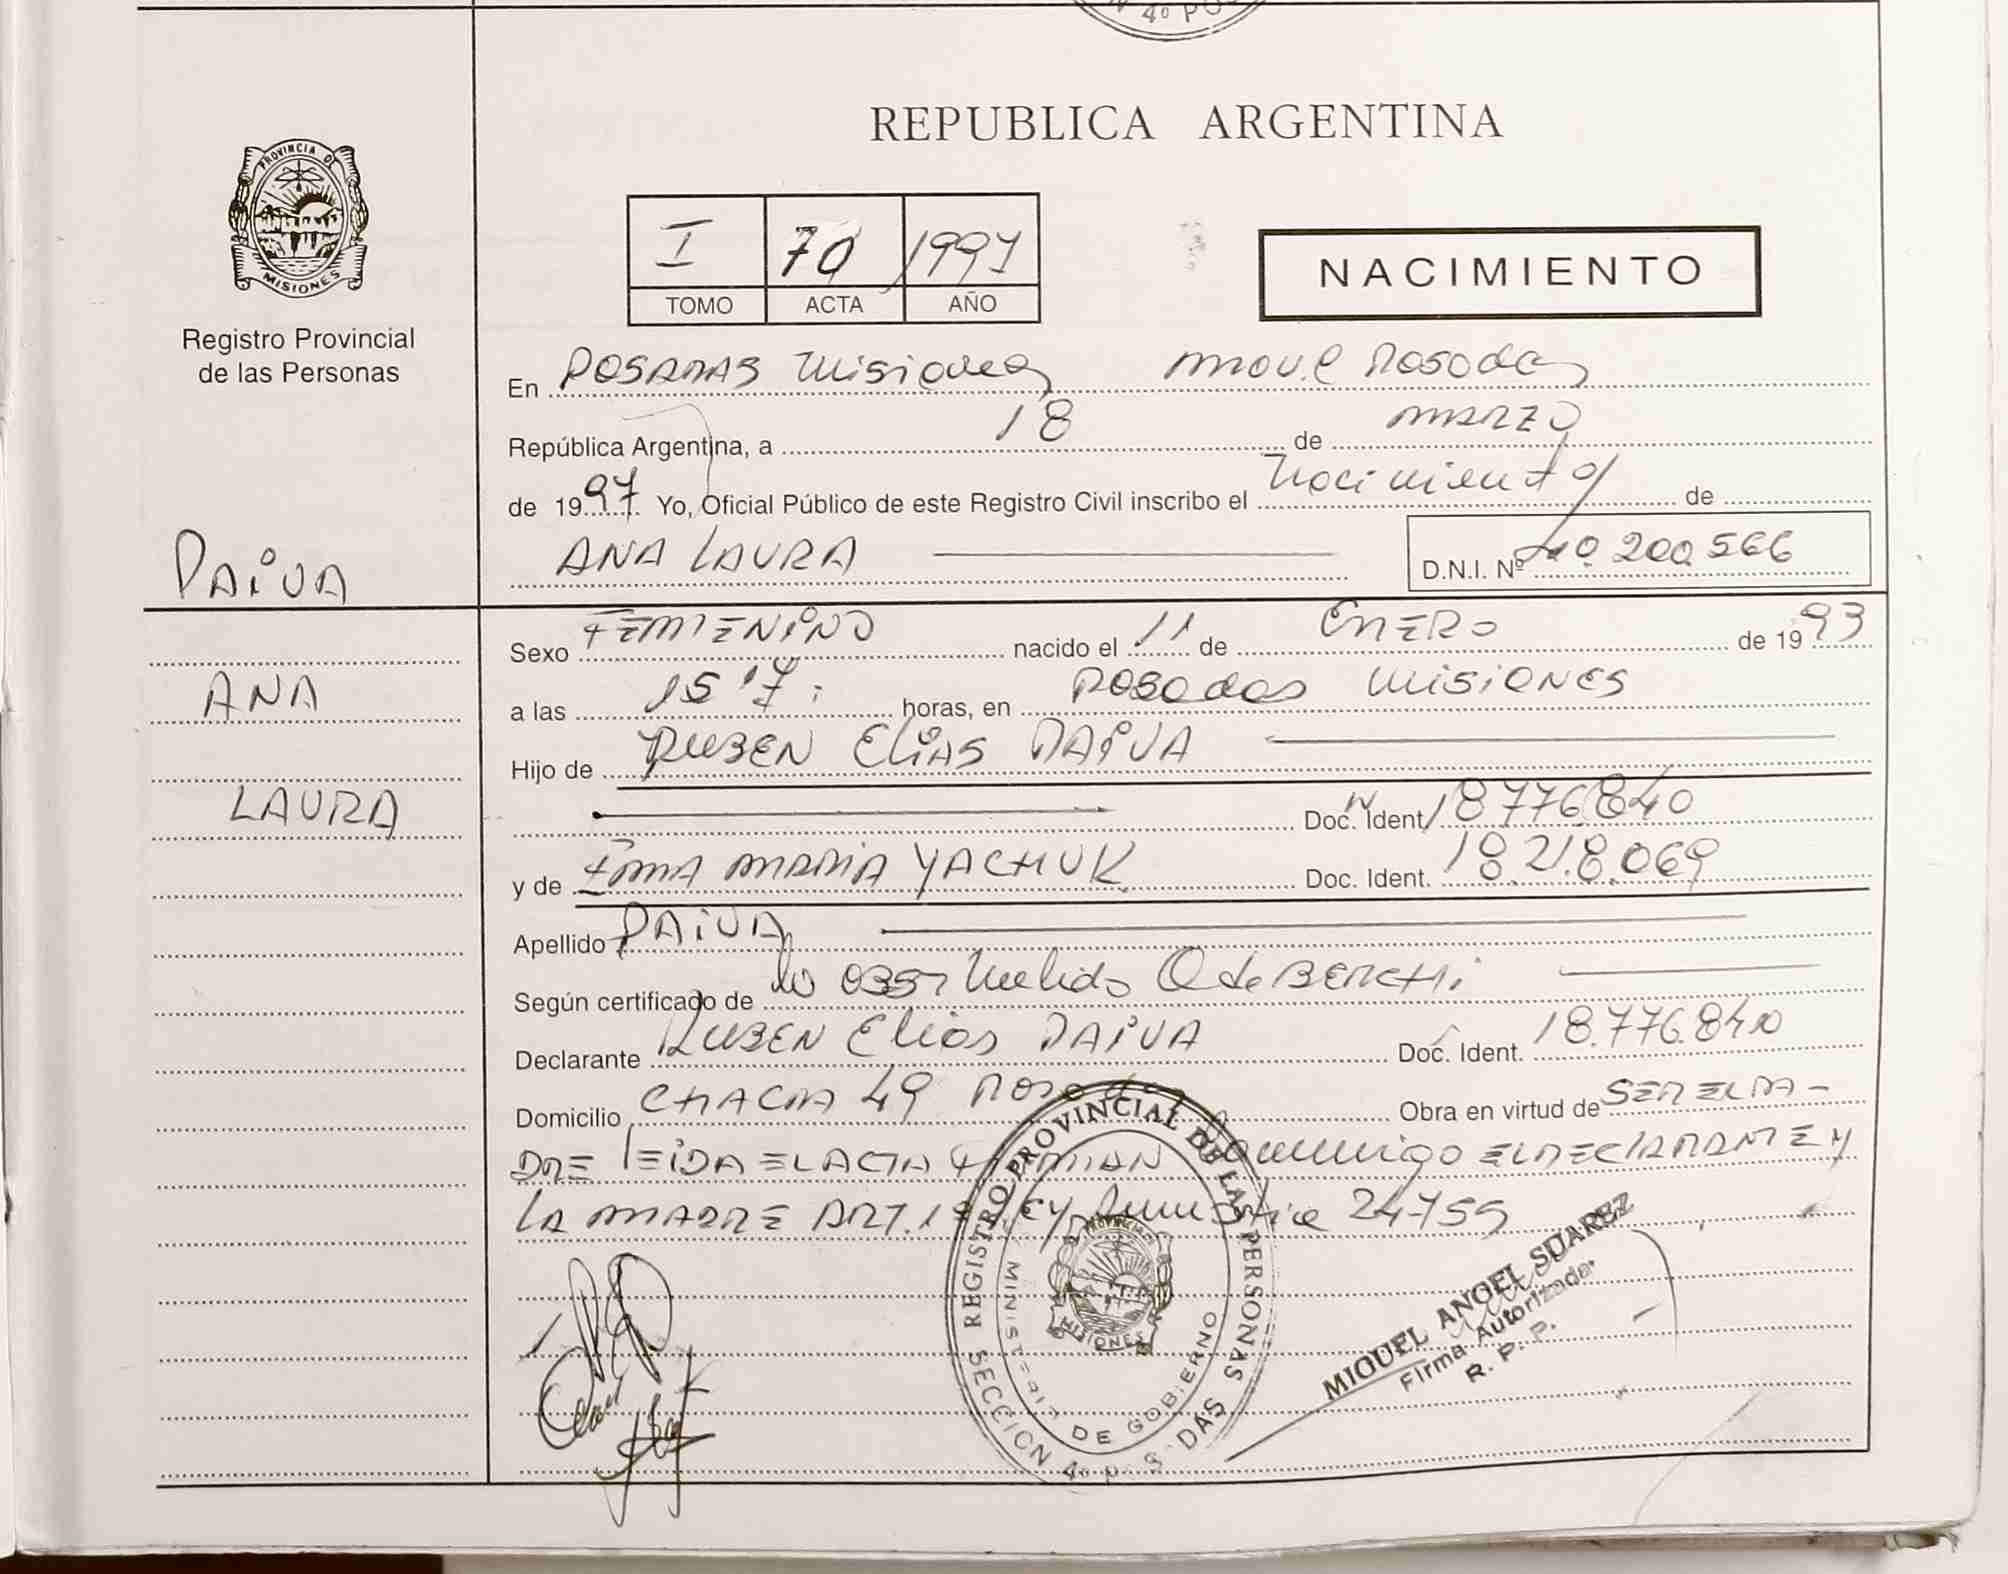 N 4º POS
REPUBLICA ARGENTINA
PROVINCIA DE
MISIONES
Registro Provincial
de las Personas
I 70 1997
TOMO ACTA AÑO
NACIMIENTO
En POSADAS Misiones Movil Posadas
República Argentina, a 18 de MARZO
de 1997 Yo, Oficial Público de este Registro Civil inscribo el Nacimiento de
PAiVA
ANA LAURA D.N.I. Nº 40.200.566
Sexo FEMENiNO nacido el 11 de ENERO de 1993
ANA
a las 15 17 horas, en Posadas MISIONES
Hijo de RUBEN ELiAS PAiVA
LAURA
Doc. Ident. 18776840
y de MARIA YACHUK Doc. Ident. 18.218.069
Apellido PAiVA
Según certificado de
Declarante RUBEN Elias PAiVA Doc. Ident. 18.776.840
Domicilio CHACRA 49 Obra en virtud de SER EL PA-
DRE LEIDA EL ACTA conmigo EL DECLARANTE Y
LA MADRE ART. 1º Ley 24755
REGISTRO PROVINCIAL DE LAS PERSONAS
MINISTERIO DE GOBIERNO
PROVINCIA
MISIONES
SECCION 4º P S DAS
MIGUEL ANGEL SUAREZ
Firma Autorizada
R. P. P.